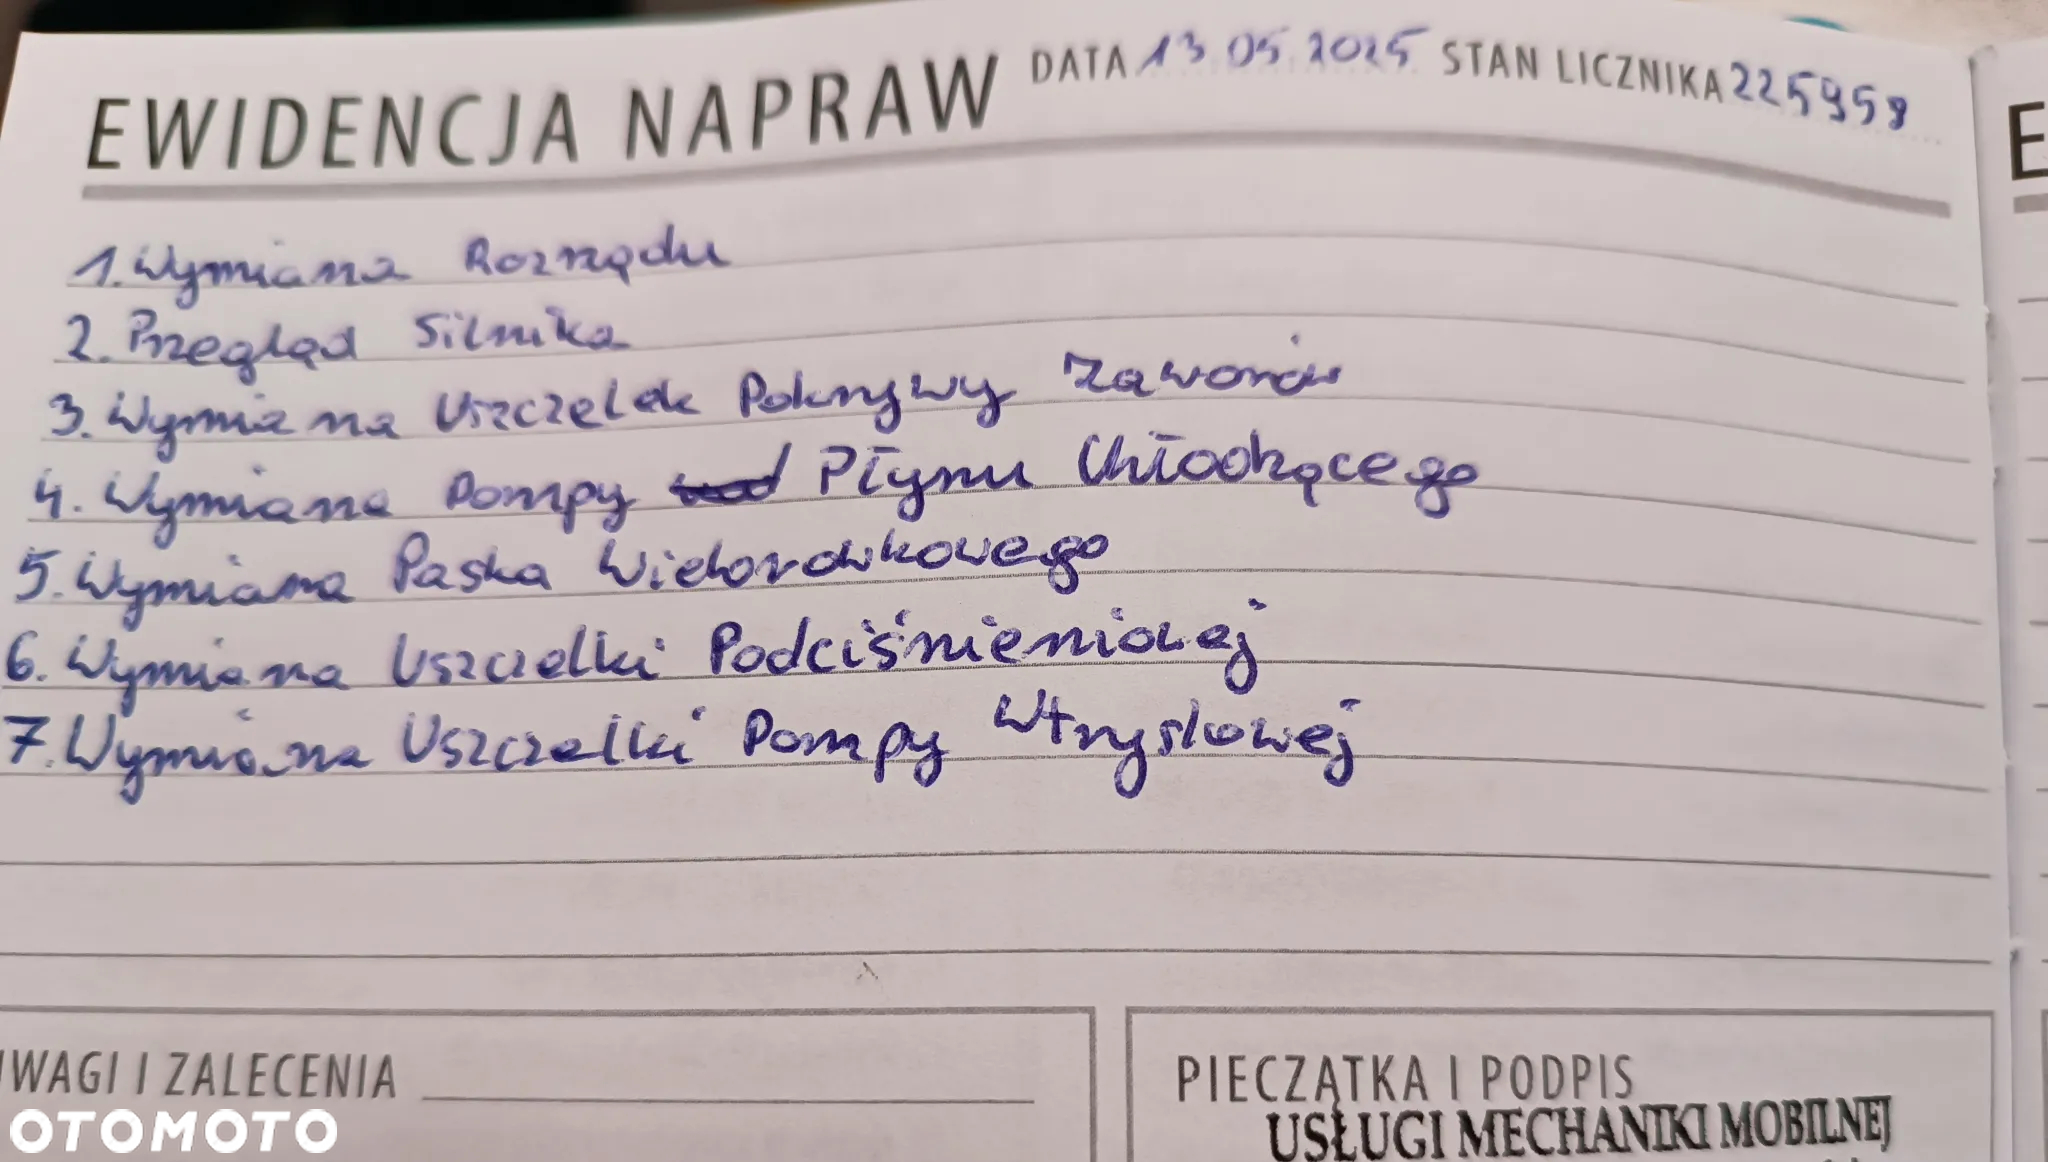 EWIDENCJA NAPRAW DATA 13.05.2025 STAN LICZNIKA 225958
1. Wymiana Rozrządu
2. Przegląd Silnika
3. Wymiana Uszczelek Pokrywy Zaworów
4. Wymiana Pompy Płynu Chłodzącego
5. Wymiana Paska Wielorowkowego
6. Wymiana Uszczelki Podciśnieniowej
7. Wymiana Uszczelki Pompy Wtryskowej
WAGI I ZALECENIA
PIECZĄTKA I PODPIS
USŁUGI MECHANIKI MOBILNEJ
OTOMOTO
E